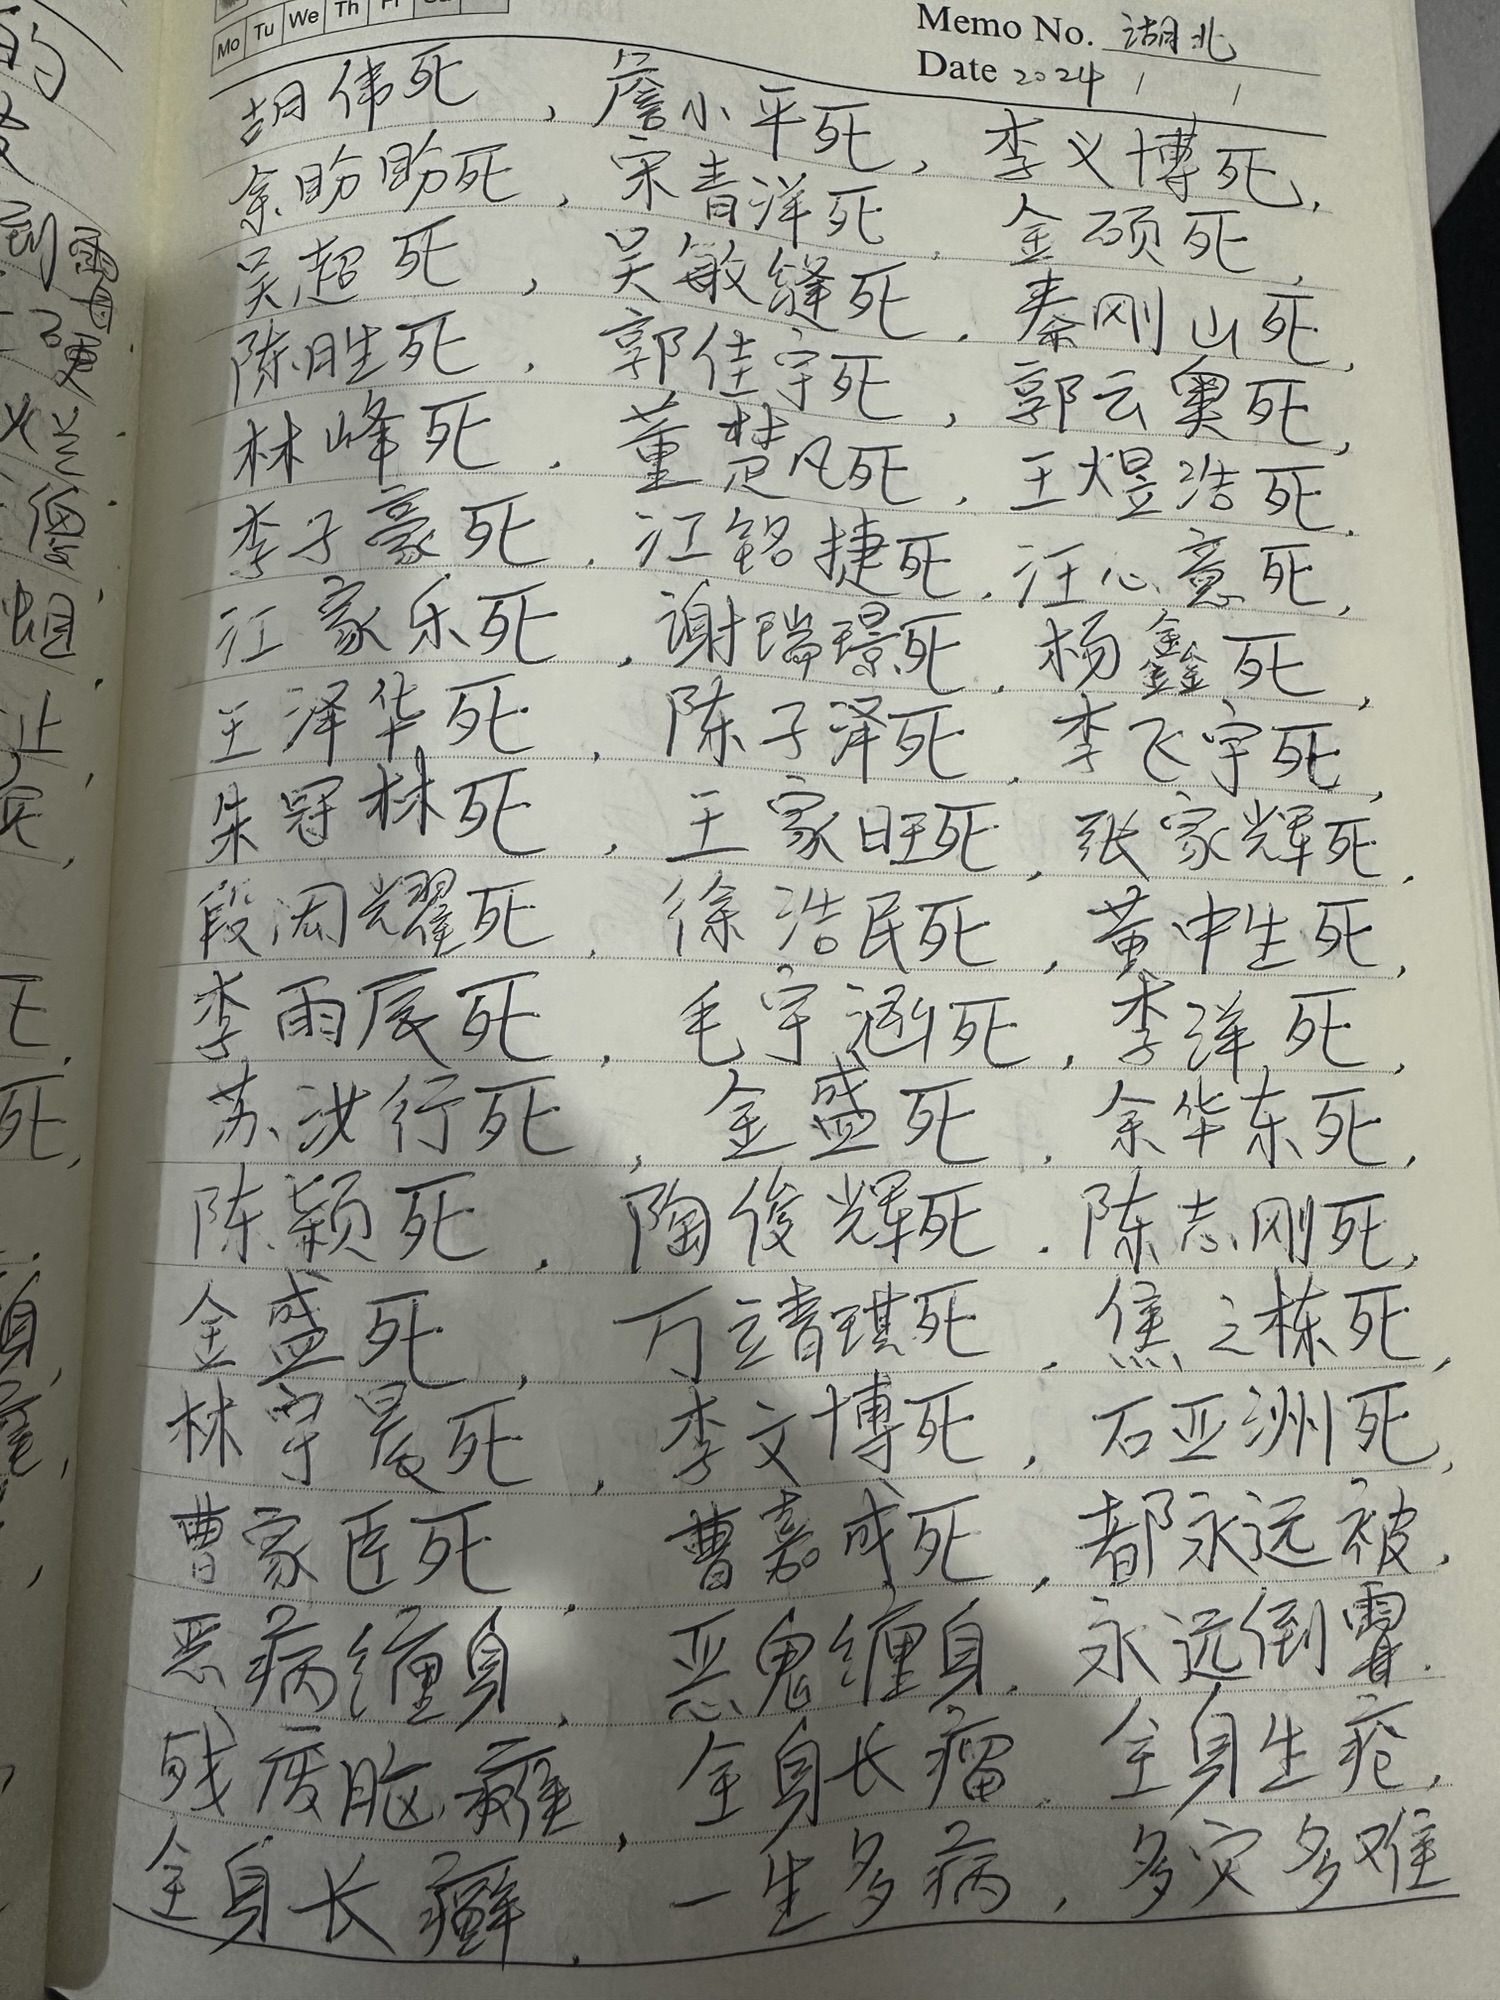 Mo Tu We Th Fr
Memo No. 湖北
Date 2024 / /
胡伟死，詹小平死，李义博死，
余盼盼死，宋青洋死，金硕死，
吴超死，吴敏缝死，秦刚山死，
陈胜死，郭佳宇死，郭云奥死，
林峰死，董楚凡死，王煜浩死，
李子豪死，江铭捷死，汪心意死，
江家乐死，谢瑞璟死，杨鑫死，
王泽华死，陈子泽死，李飞宇死，
朱冠林死，王家旺死，张家辉死，
段闳耀死，徐浩民死，黄中生死，
李雨辰死，毛宇涵死，李洋死，
苏汝行死，金盛死，余华东死，
陈颖死，陶俊辉死，陈志刚死，
金盛死，万靖琪死，焦之栋死，
林宇晨死，李文博死，石亚洲死，
曹家臣死，曹嘉成死，都永远被，
恶病缠身，恶鬼缠身，永远倒霉，
残废脑瘫，全身长瘤，全身生疮，
全身长癣，一生多病，多灾多难